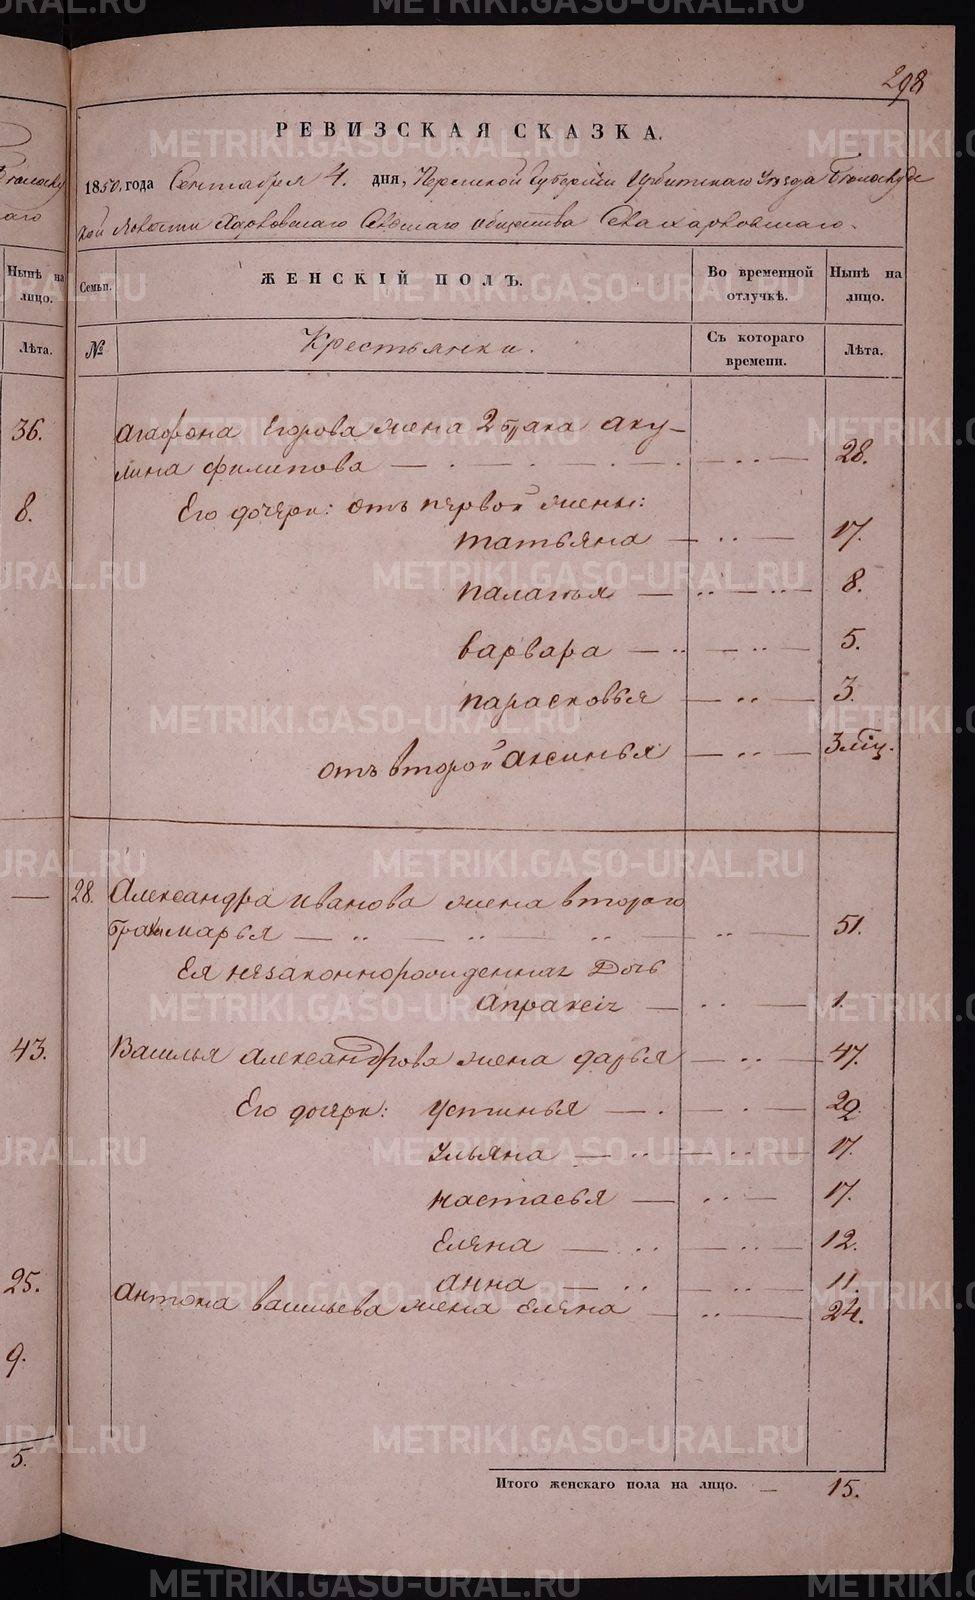 298
РЕВИЗСКАЯ СКАЗКА.
1850, года Сентября 4. дня, Пермской Губерніи Ирбитскаго Уѣзда Бѣлослуд
кой Волости Харловскаго Селскаго общества Села харловскаго.
Семьи.
ЖЕНСКІЙ ПОЛЪ.
Во временной отлучкѣ.
Нынѣ на лицо.
№
Крестьянки.
Съ котораго времени.
Лѣта.
Агафона Егорова жена 2 брака аку-
лина филипова 28.
Его дочери: отъ первой жены:
татьяна 17.
палагья 8.
варвара 5.
парасковья 3.
отъ второй аксинья 3 мѣц.
28. Александра иванова жена втораго
брака марья 51.
Ея незаконнорожденная Дочь
апраксія 1.
Василья александрова жена дарья 47.
Его дочери: устинья
ульяна 17.
настасья 17.
еляна 12.
анна 11.
антона васильева жена еляна 24.
Итого женскаго пола на лицо. 15.
Нынѣ на лицо.
Лѣта.
36.
8.
43.
25.
9.
5.
METRIKI.GASO-URAL.RU